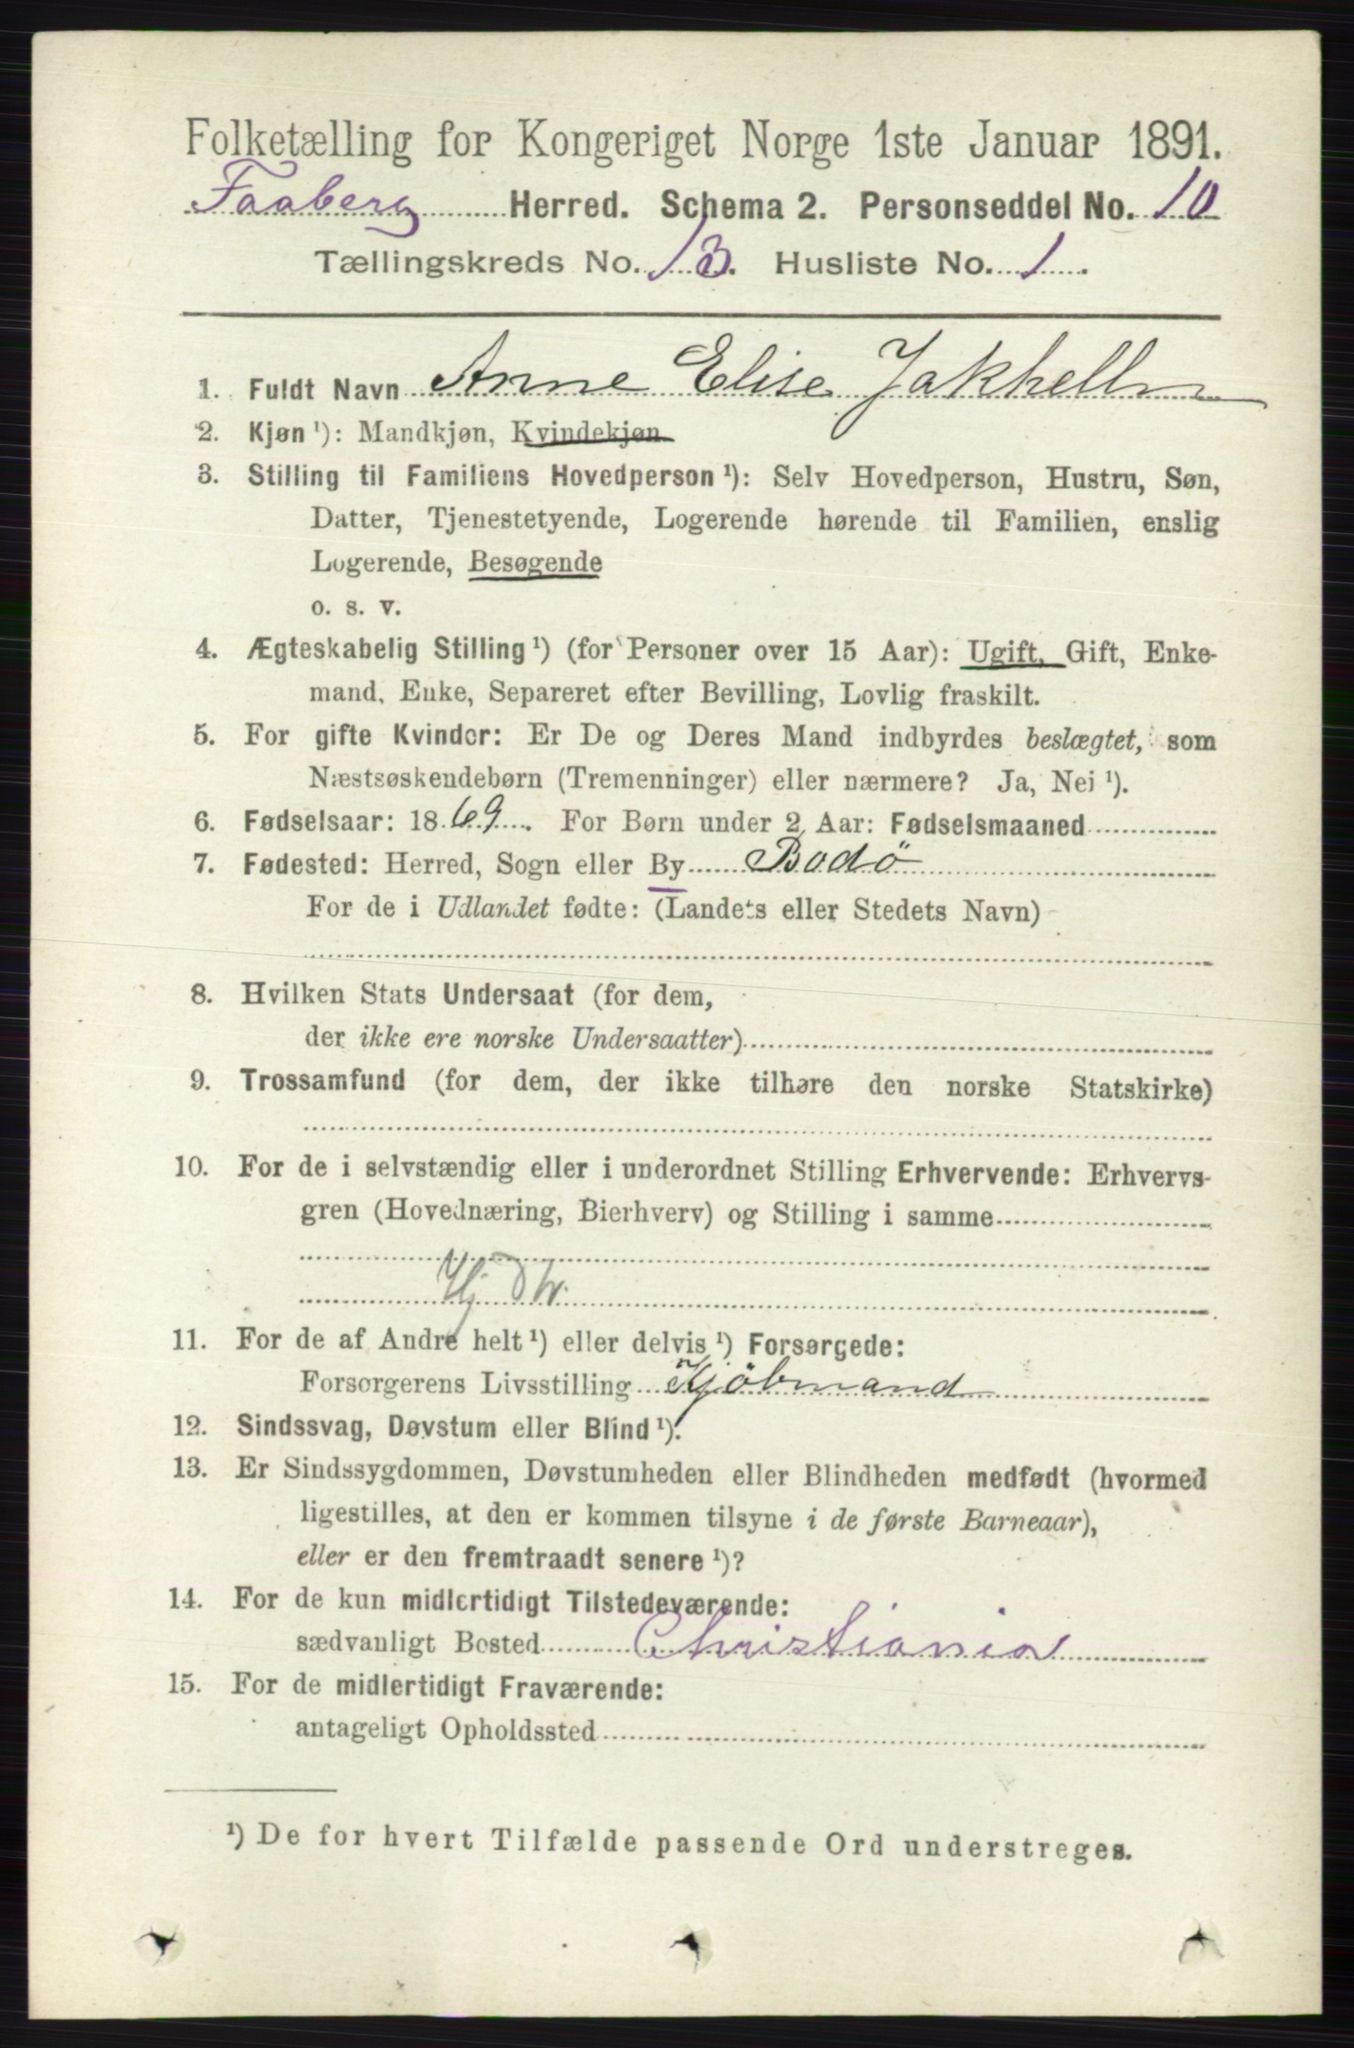 Folketælling for Kongeriget Norge 1ste Januar 1891.
Faaberg Herred. Schema 2. Personseddel No. 10
Tællingskreds No. 13. Husliste No. 1.
1. Fuldt Navn Anne Elise Jakhelln
2. Kjøn ¹): Mandkjøn, Kvindekjøn
3. Stilling til Familiens Hovedperson ¹): Selv Hovedperson, Hustru, Søn,
Datter, Tjenestetyende, Logerende hørende til Familien, enslig
Logerende, Besøgende
o. s. v.
4. Ægteskabelig Stilling ¹) (for Personer over 15 Aar): Ugift, Gift, Enke-
mand, Enke, Separeret efter Bevilling, Lovlig fraskilt.
5. For gifte Kvinder: Er De og Deres Mand indbyrdes beslægtet, som
Næstsøskendebørn (Tremenninger) eller nærmere? Ja, Nei ¹).
6. Fødselsaar: 1869. For Børn under 2 Aar: Fødselsmaaned
7. Fødested: Herred, Sogn eller By Bodö
For de i Udlandet fødte: (Landets eller Stedets Navn)
8. Hvilken Stats Undersaat (for dem,
der ikke ere norske Undersaatter)
9. Trossamfund (for dem, der ikke tilhøre den norske Statskirke)
10. For de i selvstændig eller i underordnet Stilling Erhvervende: Erhvervs-
gren (Hovednæring, Bierhverv) og Stilling i samme
Hj
11. For de af Andre helt ¹) eller delvis ¹) Forsørgede:
Forsørgerens Livsstilling Kjöbmand
12. Sindssvag, Døvstum eller Blind ¹).
13. Er Sindssygdommen, Døvstumheden eller Blindheden medfødt (hvormed
ligestilles, at den er kommen tilsyne i de første Barneaar),
eller er den fremtraadt senere ¹)?
14. For de kun midlertidigt Tilstedeværende:
sædvanligt Bosted Christiania
15. For de midlertidigt Fraværende:
antageligt Opholdssted
¹) De for hvert Tilfælde passende Ord understreges.